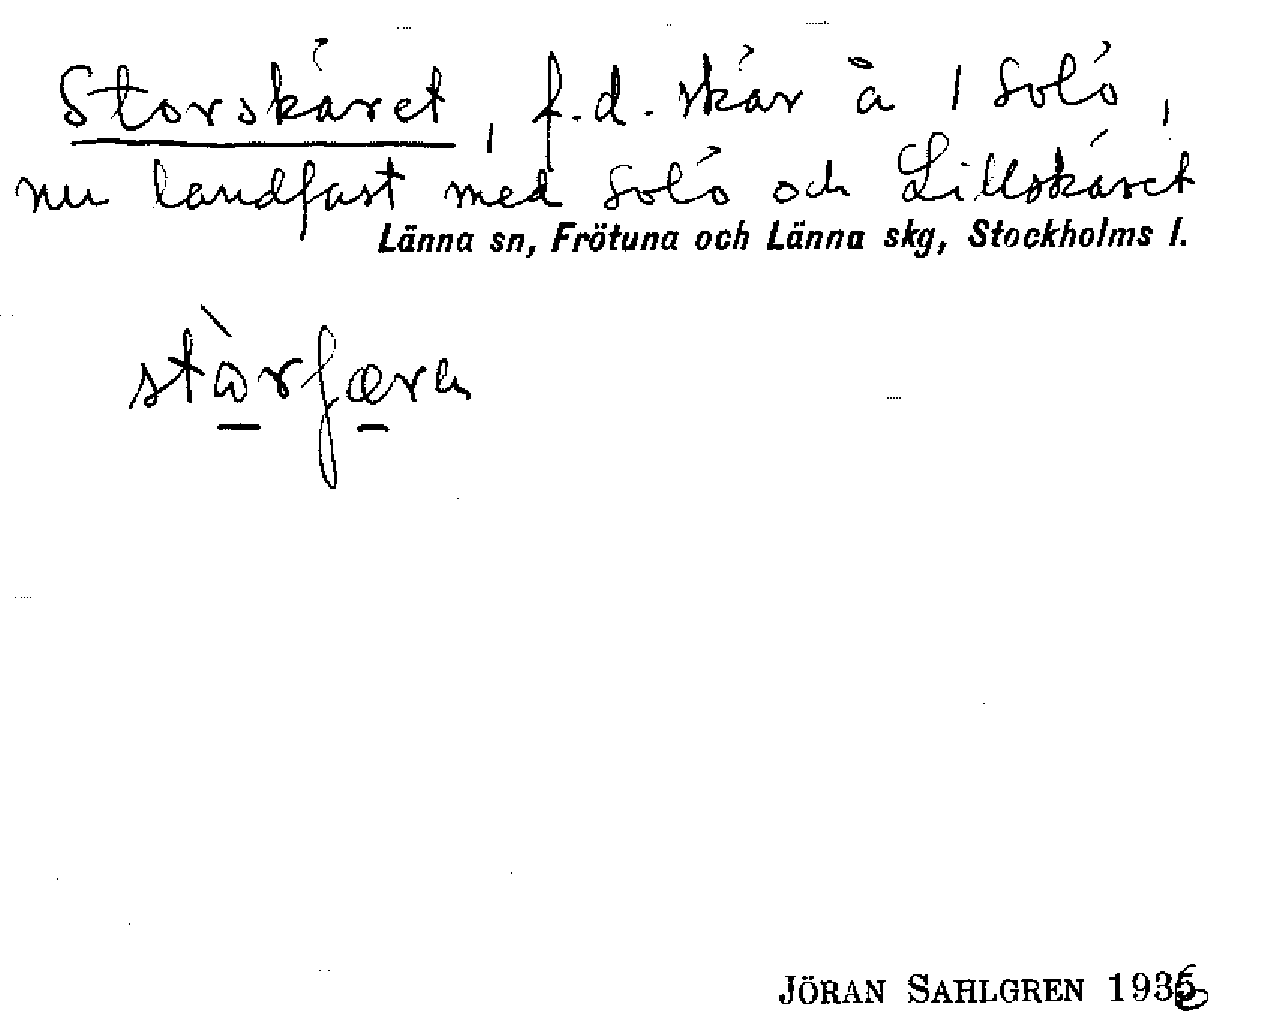 Storskäret, f.d. skär å 1 Solö,
nu landfast med Solö och Lillskäret
Länna sn, Frötuna och Länna skg, Stockholms l.
stὼrʃæra
JÖRAN SAHLGREN 1936